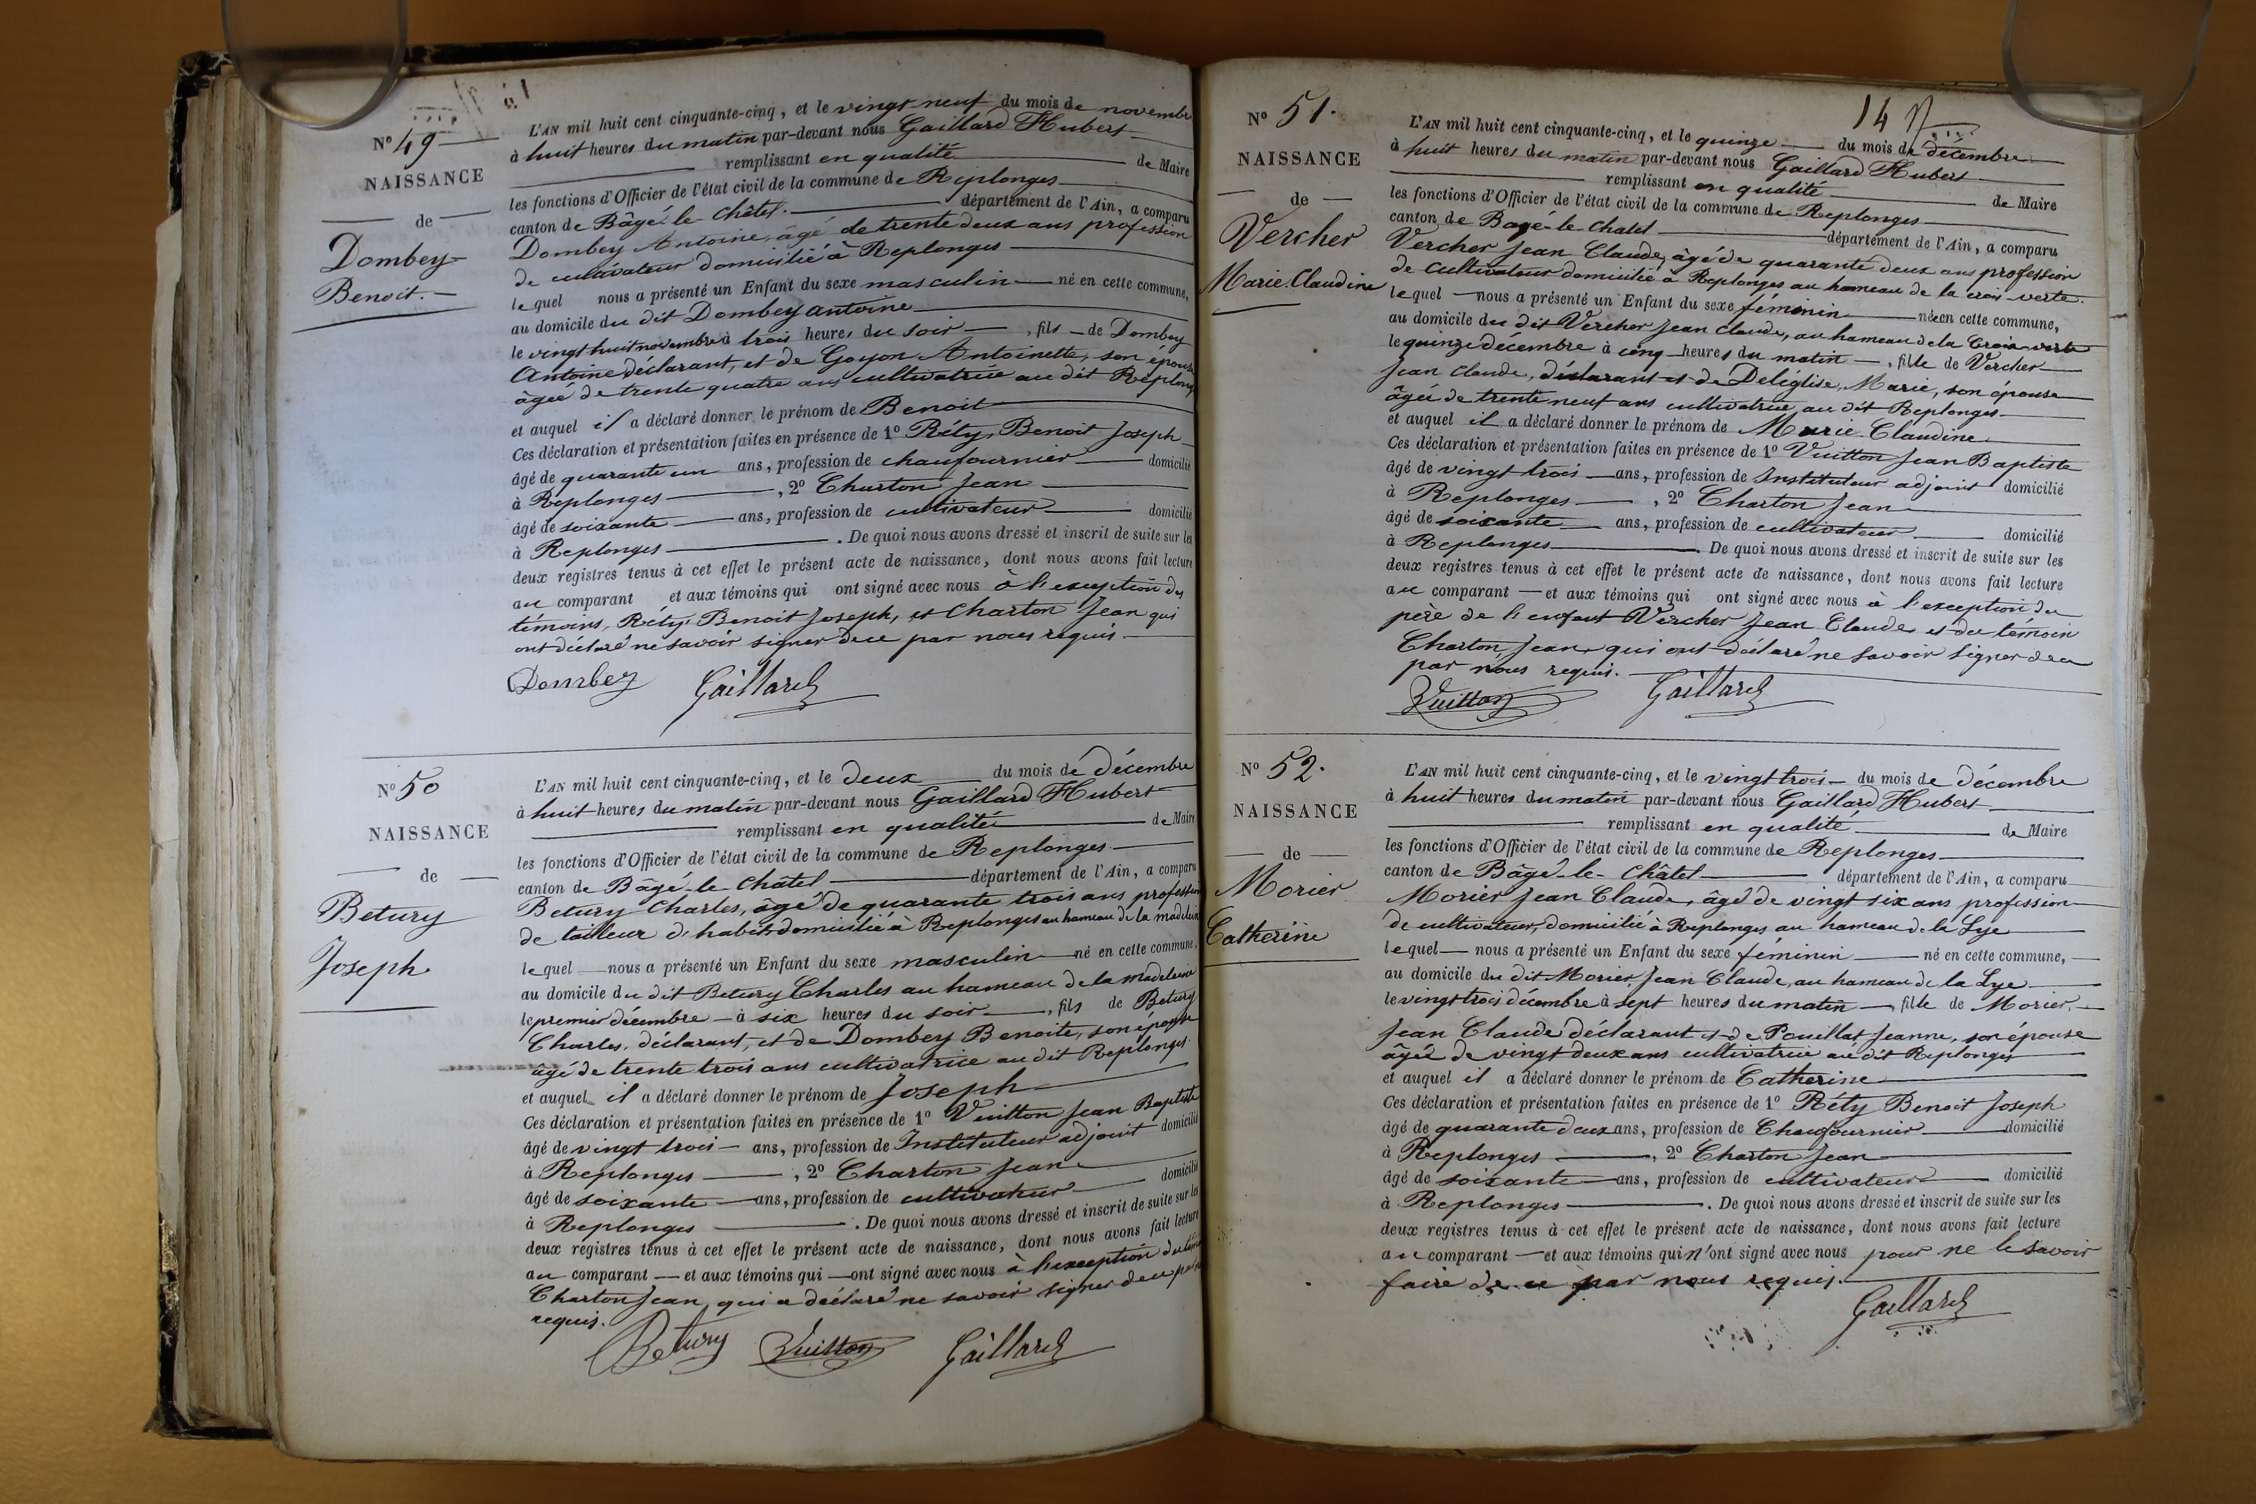 N° 49
NAISSANCE
de
Dombey
Benoit.
L'AN mil huit cent cinquante-cinq, et le vingt neuf du mois de novembre
à huit heures du matin par-devant nous Gaillard Hubert
remplissant en qualité de Maire
les fonctions d'Officier de l'état civil de la commune de Replonges
canton de Bâgé-le-Châtel. département de l'Ain, a comparu
Dombey Antoine, âgé de trente deux ans profession
de cultivateur domicilié à Replonges
lequel nous a présenté un Enfant du sexe masculin né en cette commune,
au domicile du dit Dombey antoine
le vingt huit novembre à trois heures du soir, fils de Dombey
Antoine déclarant, et de Goyon Antoinette, son épouse
âgée de trente quatre ans cultivatrice au dit Replonges
et auquel il a déclaré donner le prénom de Benoit
Ces déclaration et présentation faites en présence de 1° Réty, Benoit Joseph
âgé de quarante un ans, profession de chaufournier domicilié
à Replonges, 2° Charton Jean
âgé de soixante ans, profession de cultivateur domicilié
à Replonges. De quoi nous avons dressé et inscrit de suite sur les
deux registres tenus à cet effet le présent acte de naissance, dont nous avons fait lecture
au comparant et aux témoins qui ont signé avec nous à l'exception des
témoins, Réty Benoit Joseph, et Charton Jean qui
ont déclaré ne savoir signer de ce par nous requis
Dombey Gaillard
N° 50
NAISSANCE
de
Betury
Joseph
L'AN mil huit cent cinquante-cinq, et le deux du mois de décembre
à huit heures du matin par-devant nous Gaillard Hubert
remplissant en qualité de Maire
les fonctions d'Officier de l'état civil de la commune de Replonges
canton de Bâgé-le-Châtel département de l'Ain, a comparu
Betury Charles, âgé de quarante trois ans, profession
de tailleur d'habits domicilié à Replonges au hameau de la madeleine
lequel nous a présenté un Enfant du sexe masculin né en cette commune,
au domicile du dit Betury Charles au hameau de la madeleine
le premier décembre à six heures du soir, fils de Betury
Charles, déclarant, et de Dombey Benoite, son épouse
âgé de trente trois ans cultivatrice au dit Replonges
et auquel il a déclaré donner le prénom de Joseph
Ces déclaration et présentation faites en présence de 1° Vuitton Jean Baptiste
âgé de vingt trois ans, profession de Instituteur adjoint domicilié
à Replonges, 2° Charton Jean
âgé de soixante ans, profession de cultivateur domicilié
à Replonges. De quoi nous avons dressé et inscrit de suite sur les
deux registres tenus à cet effet le présent acte de naissance, dont nous avons fait lecture
au comparant et aux témoins qui ont signé avec nous à l'exception du
Charton Jean, qui a déclaré ne savoir signer de ce par
requis.
Betury Vuitton Gaillard
14
N° 51.
NAISSANCE
de
Vercher
Marie Claudine
L'AN mil huit cent cinquante-cinq, et le quinze du mois de décembre
à huit heures du matin par-devant nous Gaillard Hubert
remplissant en qualité de Maire
les fonctions d'Officier de l'état civil de la commune de Replonges
canton de Bagé-le-Chatel département de l'Ain, a comparu
Vercher Jean Claude, âgé de quarante deux ans profession
de cultivateur domicilié à Replonges au hameau de la croix verte.
lequel nous a présenté un Enfant du sexe féminin née en cette commune,
au domicile du dit Vercher Jean Claude, au hameau de la Croix verte
le quinze décembre à cinq heures du matin, fille de Vercher
Jean Claude, déclarant et de Deléglise, Marie, son épouse
âgée de trente neuf ans cultivatrice au dit Replonges.
et auquel il a déclaré donner le prénom de Marie Claudine
Ces déclaration et présentation faites en présence de 1° Vuitton Jean Baptiste
âgé de vingt trois ans, profession de Instituteur adjoint domicilié
à Replonges, 2° Charton Jean
âgé de soixante ans, profession de cultivateur domicilié
à Replonges. De quoi nous avons dressé et inscrit de suite sur les
deux registres tenus à cet effet le présent acte de naissance, dont nous avons fait lecture
au comparant et aux témoins qui ont signé avec nous à l'exception du
père de l'enfant Vercher Jean Claude et du témoin
Charton Jean, qui ont déclaré ne savoir signer de ce
par nous requis.
Vuitton Gaillard
N° 52.
NAISSANCE
de
Morier
Catherine
L'AN mil huit cent cinquante-cinq, et le vingt trois du mois de décembre
à huit heures du matin par-devant nous Gaillard Hubert
remplissant en qualité de Maire
les fonctions d'Officier de l'état civil de la commune de Replonges
canton de Bâgé-le-Châtel département de l'Ain, a comparu
Morier Jean Claude, âgé de vingt six ans profession
de cultivateur, domicilié à Replonges au hameau de la Lye
lequel nous a présenté un Enfant du sexe féminin né en cette commune,
au domicile du dit Morier, Jean Claude, au hameau de la Lye
le vingt trois décembre à sept heures du matin, fille de Morier,
Jean Claude déclarant et de Pouillat Jeanne, son épouse
âgée de vingt deux ans cultivatrice au dit Replonges
et auquel il a déclaré donner le prénom de Catherine
Ces déclaration et présentation faites en présence de 1° Réty Benoit Joseph
âgé de quarante deux ans, profession de Chaufournier domicilié
à Replonges, 2° Charton Jean
âgé de soixante ans, profession de cultivateur domicilié
à Replonges. De quoi nous avons dressé et inscrit de suite sur les
deux registres tenus à cet effet le présent acte de naissance, dont nous avons fait lecture
au comparant et aux témoins qui n'ont signé avec nous pour ne le savoir
faire de ce par nous requis.
Gaillard